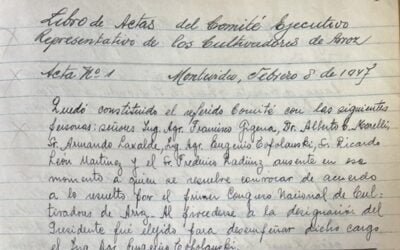 Libro de Actas del Comité Ejecutivo
Representativo de los Cultivadores de Arroz
Acta Nº 1 Montevideo, Febrero 8 de 1947
Quedó constituído el referido Comité con las siguientes
personas: señores Ing. Agr. Francisco Gigena, Dr. Alberto C. Morelli,
Sr. Armando Laxalde, Ing. Agr. Eugenio Exfolanski, Sr. Ricardo
León Martinez y el Sr. Frederico Radiünz ausente en ese
momento a quien se resuelve convocar de acuerdo
a lo resuelto por el primer Congreso Nacional de Cul-
tivadores de Arroz. Al procederse a la designación del
Presidente fué elejido para desempeñar dicho cargo
el Ing. Agr. Eugenio Exfolanski.